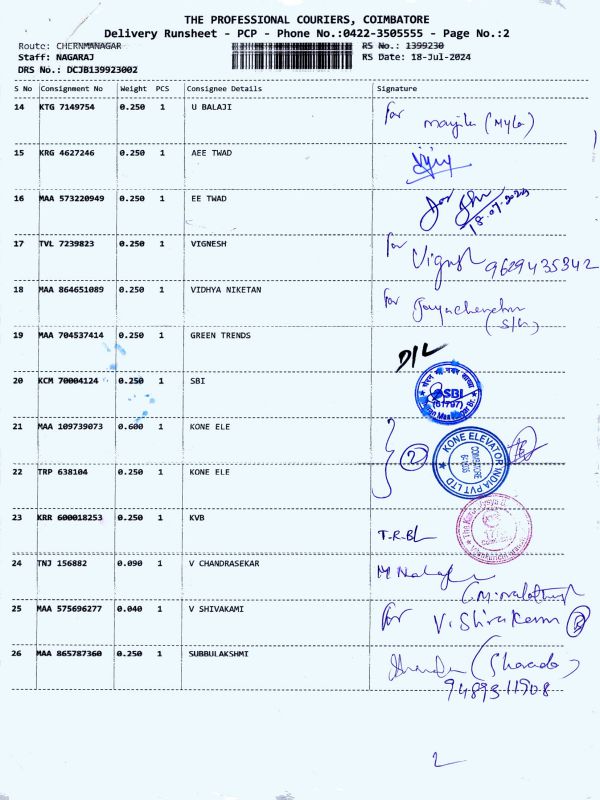 THE PROFESSIONAL COURIERS, COIMBATORE
Delivery Runsheet - PCP - Phone No.:0422-3505555 - Page No.:2
Route: CHERNMANAGAR RS No.: 1399230
Staff: NAGARAJ RS Date: 18-Jul-2024
DRS No.: DCJB139923002
S No Consignment No Weight PCS Consignee Details Signature
14 KTG 7149754 0.250 1 U BALAJI for
15 KRG 4627246 0.250 1 AEE TWAD
16 MAA 573220949 0.250 1 EE TWAD
18.07.2024
17 TVL 7239823 0.250 1 VIGNESH for
Vignesh 9629435342
18 MAA 864651089 0.250 1 VIDHYA NIKETAN for
19 MAA 704537414 0.250 1 GREEN TRENDS
D/L
20 KCM 70004124 0.250 1 SBI
SBI
(61797)
21 MAA 109739073 0.600 1 KONE ELE
2 KONE ELEVATOR INDIA PVT LTD
COIMBATORE
22 TRP 638104 0.250 1 KONE ELE
23 KRR 600018253 0.250 1 KVB
T.R.BL
24 TNJ 156882 0.090 1 V CHANDRASEKAR
25 MAA 575696277 0.040 1 V SHIVAKAMI for V. Shivakami
26 MAA 865787360 0.250 1 SUBBULAKSHMI
9489311908
2